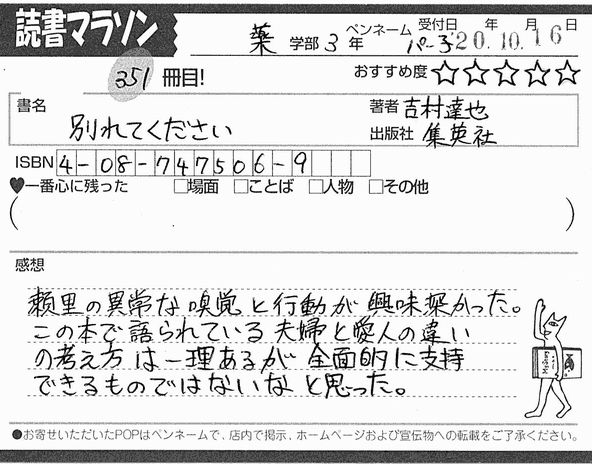 読書マラソン
薬 学部 3年 ペンネーム パー子 受付日 年 月 日 '20.10.16
351 冊目! おすすめ度 ☆☆☆☆☆
書名 別れてください
著者 吉村達也
出版社 集英社
ISBN 4-08-747506-9
♥一番心に残った □場面 □ことば □人物 □その他
( )
感想
頼里の異常な嗅覚と行動が興味深かった。
この本で語られている夫婦と愛人の違い
の考え方は一理あるが全面的に支持
できるものではないなと思った。
●お寄せいただいたPOPはペンネームで、店内で掲示、ホームページおよび宣伝物への転載をご了承ください。